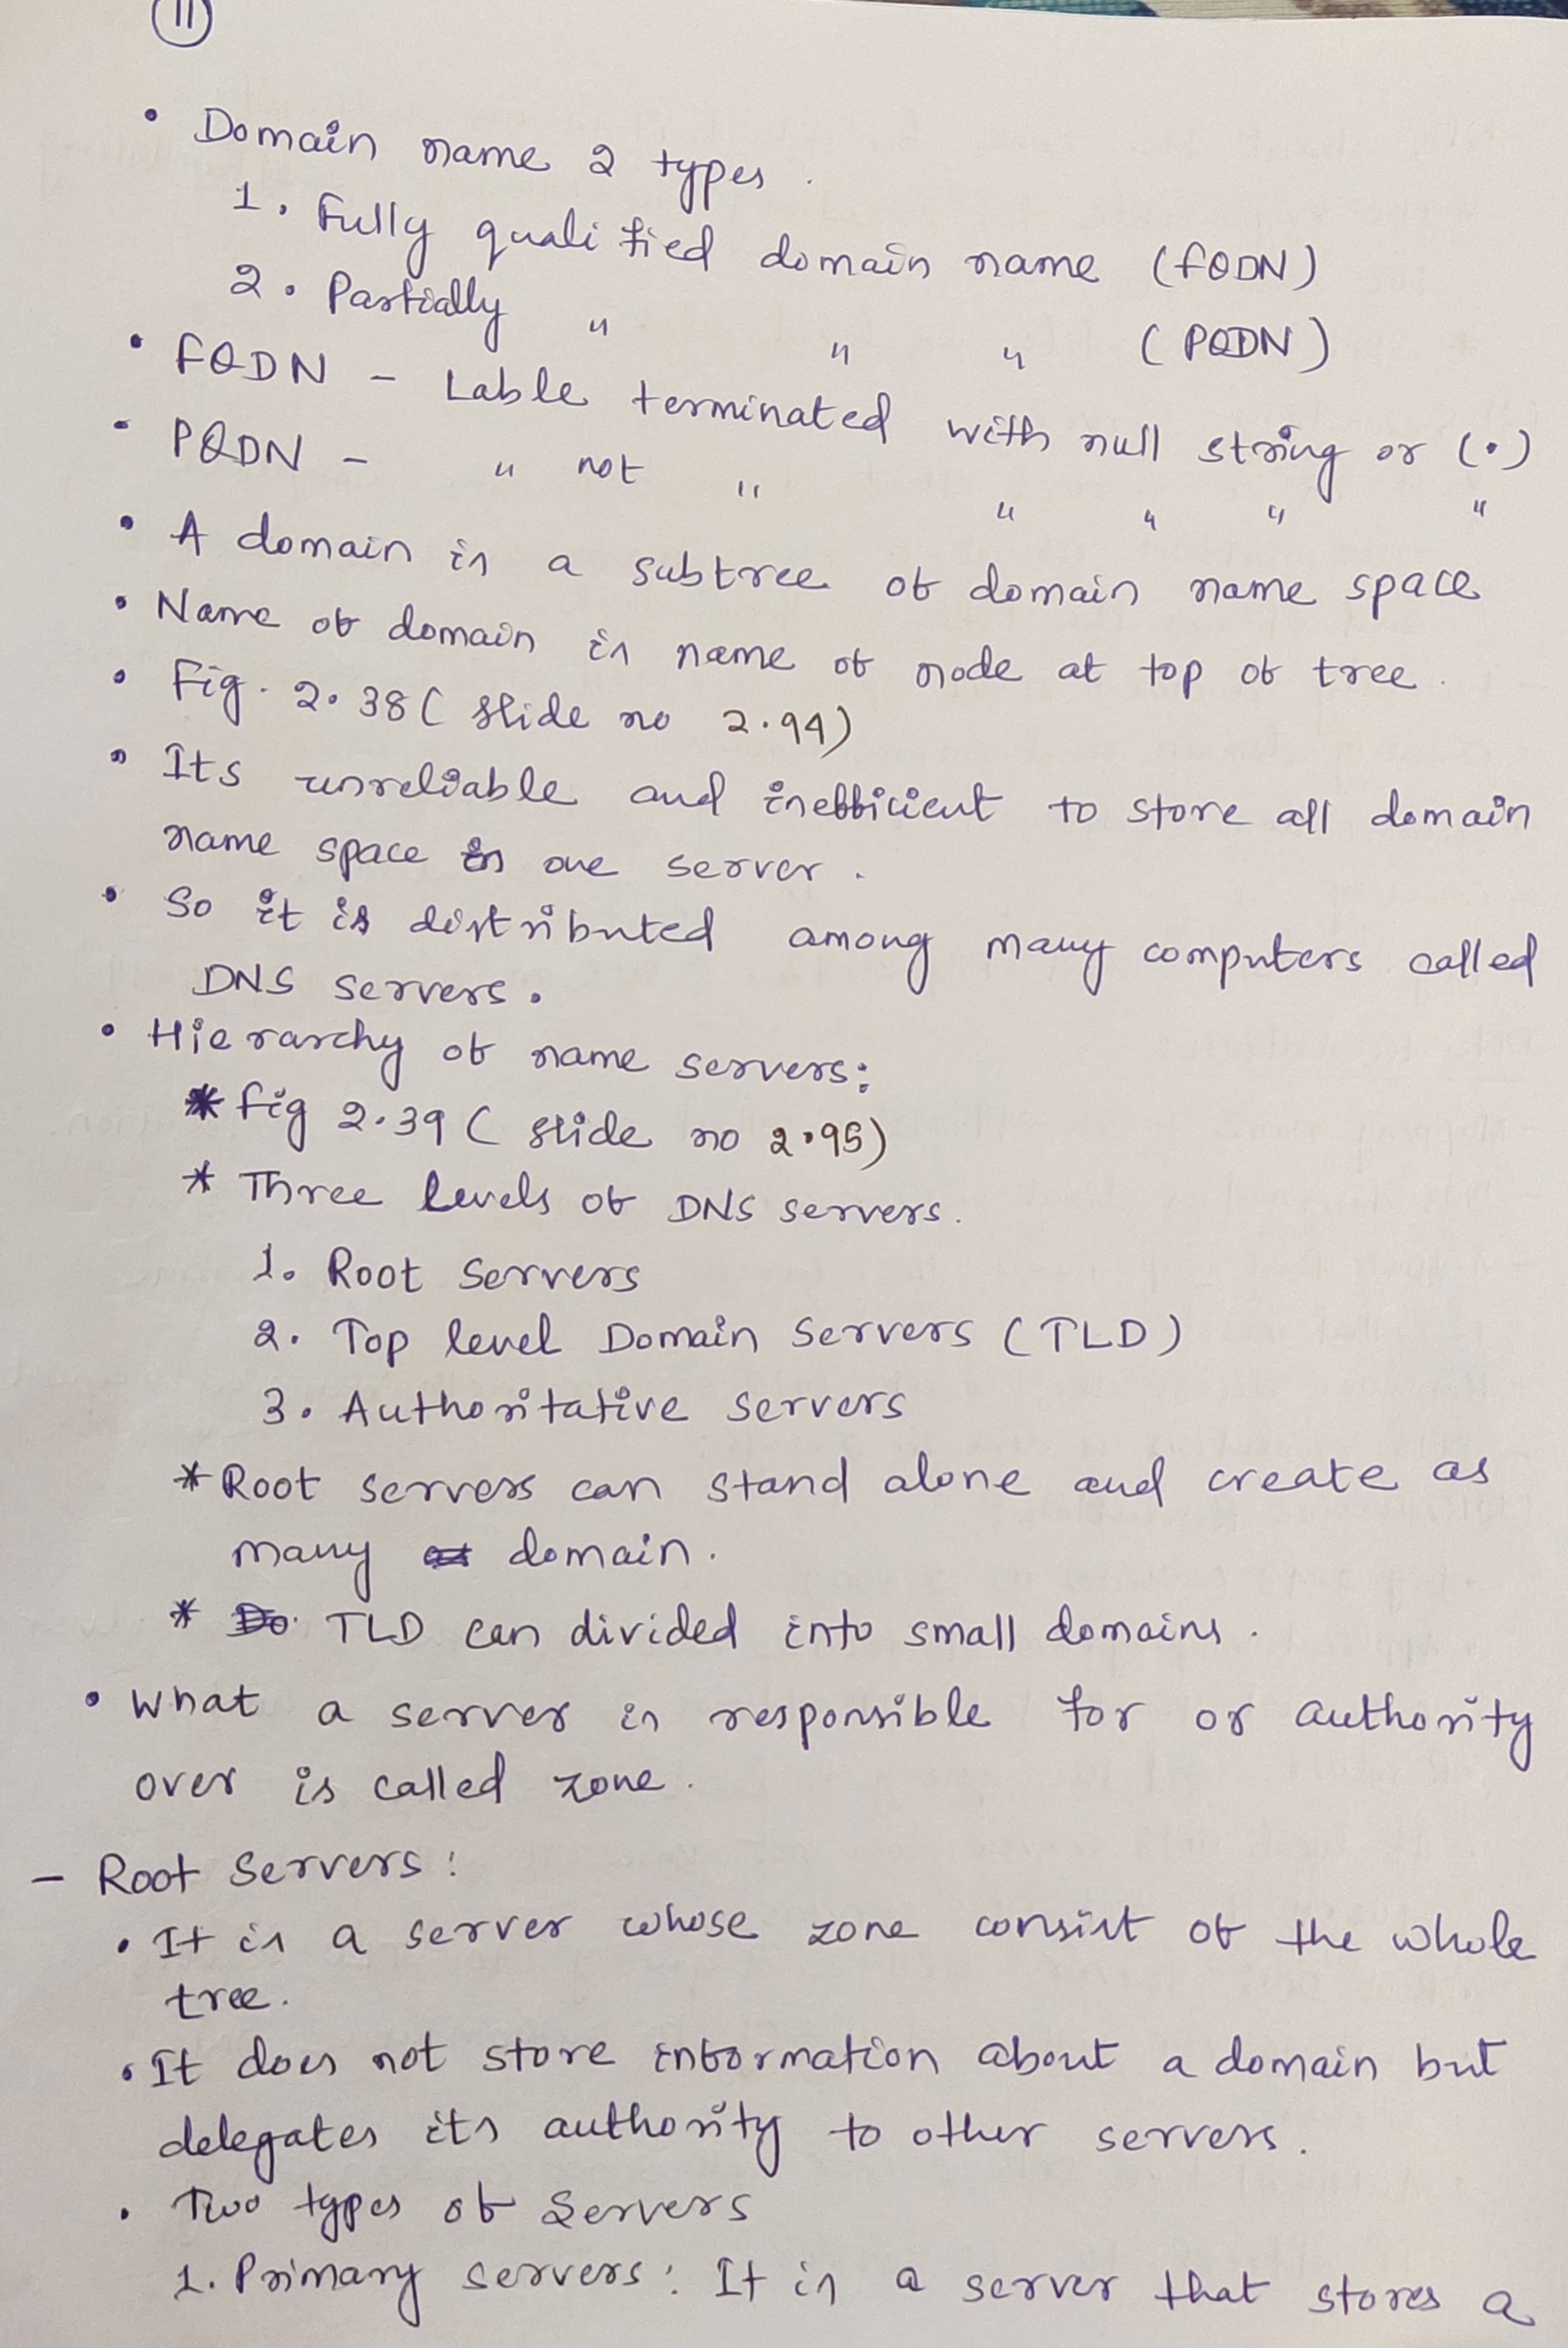 11
• Domain name 2 types.
1. Fully qualified domain name (FQDN)
2. Partially " " " (PQDN)
• FQDN - Lable terminated with null string or (.)
• PQDN - " not " " " " "
• A domain is a subtree of domain name space
• Name of domain is name of node at top of tree.
• Fig. 2.38 ( slide no 2.94)
• Its unreliable and inefficient to store all domain
name space in one server.
• So it is distributed among many computers called
DNS servers.
• Hierarchy of name servers:
* fig 2.39 ( slide no 2.95)
* Three levels of DNS servers.
1. Root Servers
2. Top level Domain Servers (TLD)
3. Authoritative servers
* Root servers can stand alone and create as
many domain.
* TLD can divided into small domains.
• What a server is responsible for or authority
over is called zone.
- Root Servers:
• It is a server whose zone consist of the whole
tree.
• It does not store information about a domain but
delegates its authority to other servers.
• Two types of Servers
1. Primary servers: It is a server that stores a